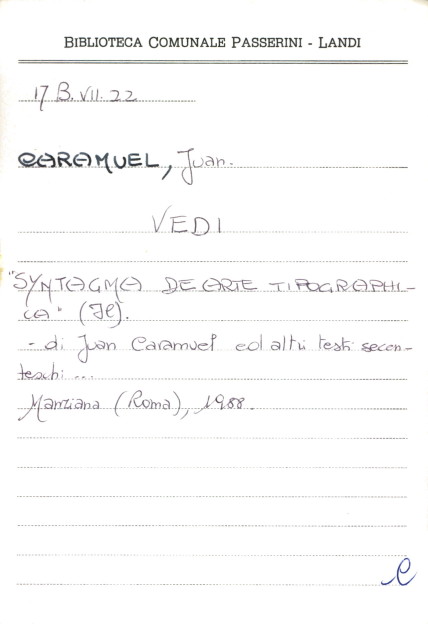 BIBLIOTECA COMUNALE PASSERINI - LANDI
17 B. VII. 22
CARAMUEL, Juan.
VEDI
"SYNTAGMA DE ARTE TIPOGRAPHI-
CA" (Il).
- di Juan Caramuel ed altri testi secen-
teschi ...
Manziana (Roma), 1988.